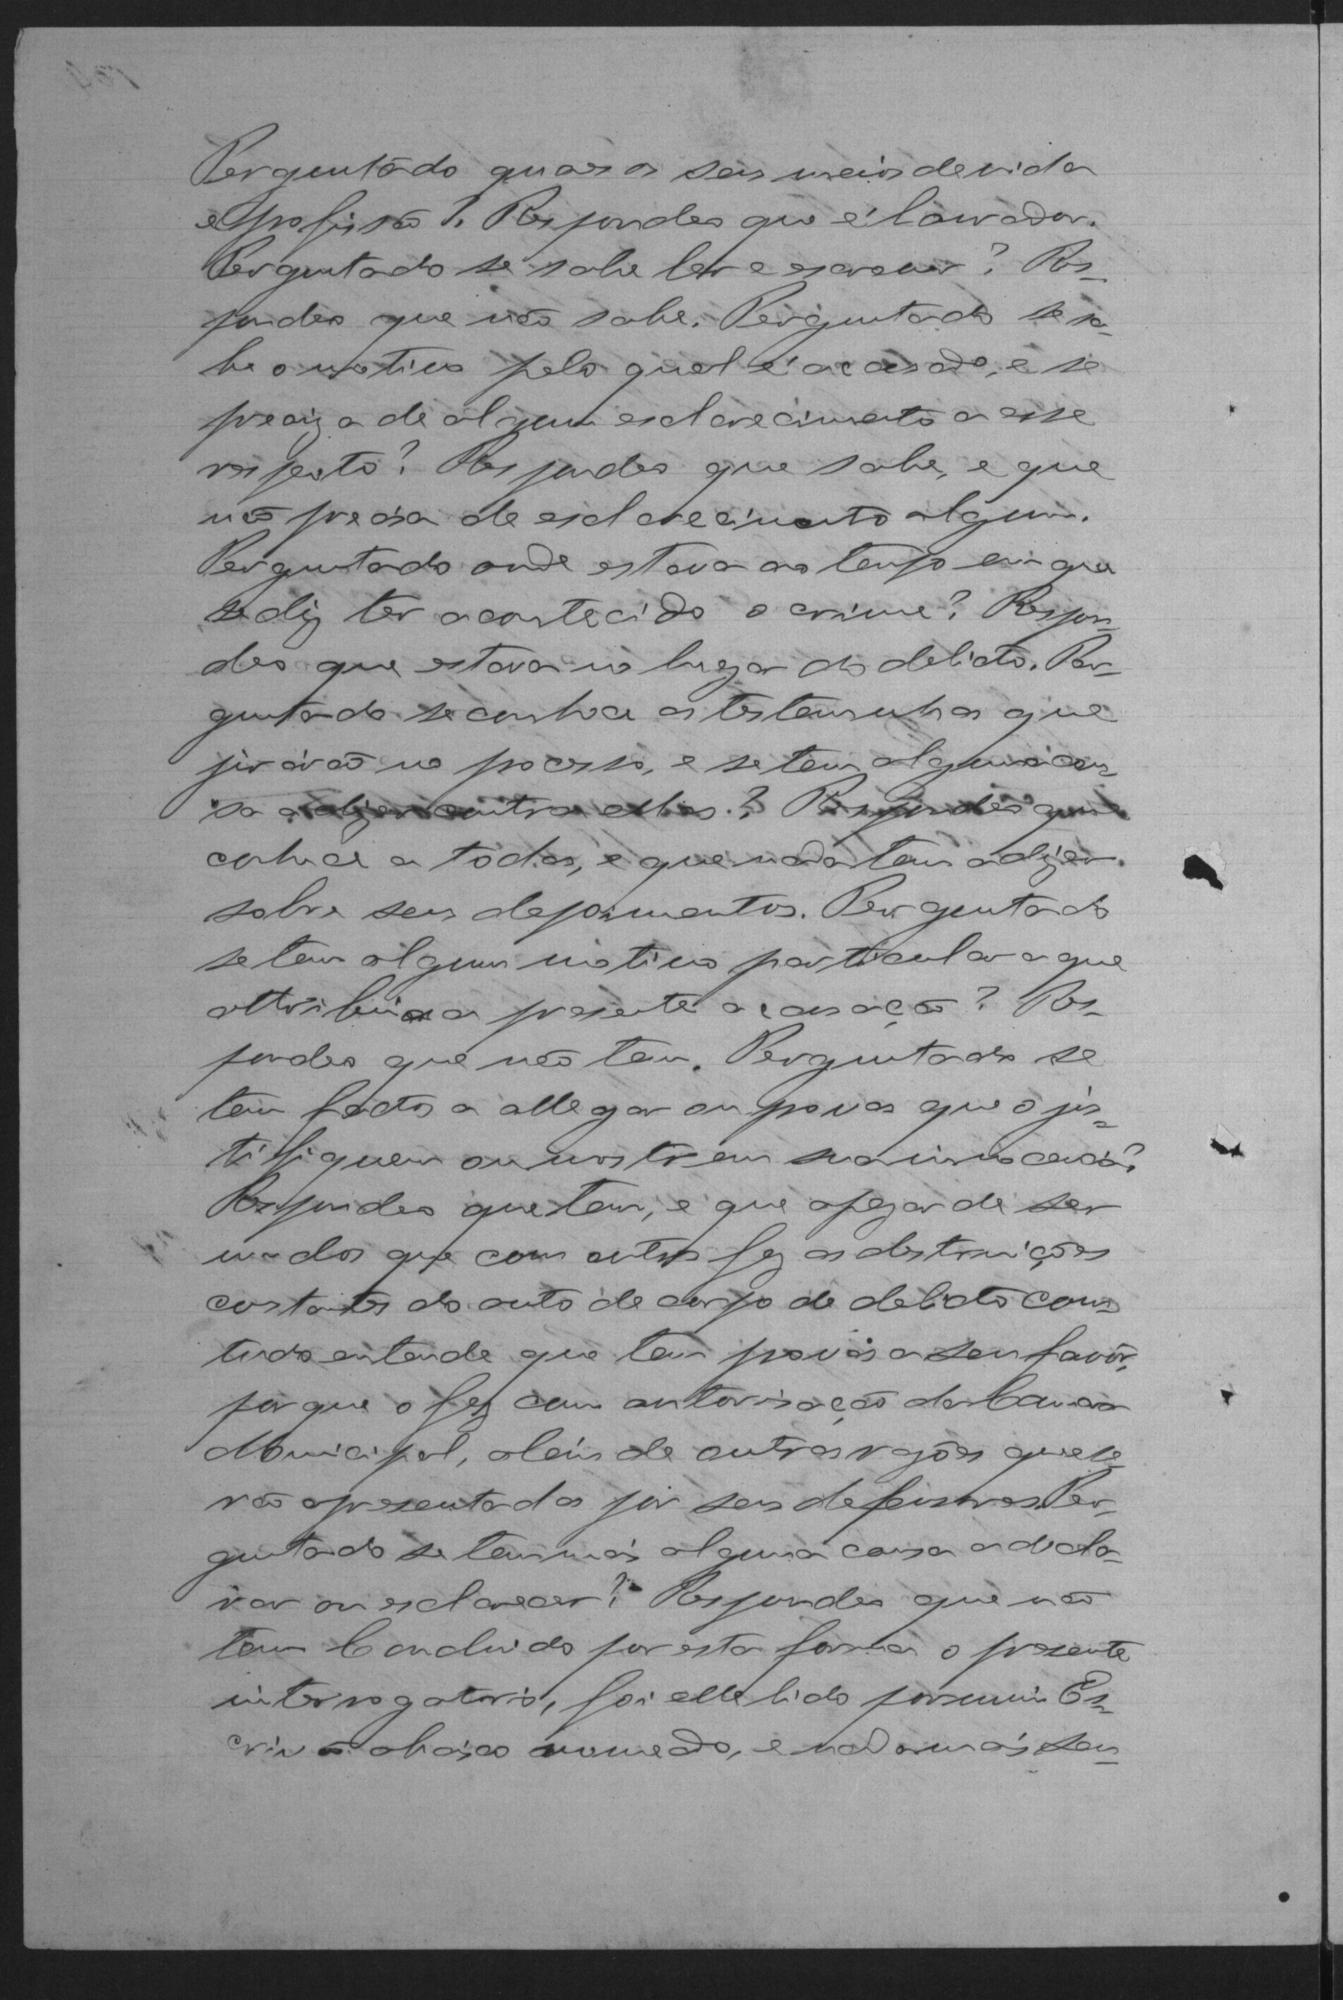 Perguntado quaes os seus meios de vida
e profissão? Respondeo que é lavrador.
Perguntado se sabe ler e escrever? Res-
pondeo que não sabe. Perguntado se sa-
be o motivo pelo qual é accusado, e se
preciza de algum esclarecimento a esse
respeito? Respondeo que sabe, e que
não precisa de esclarecimento algum.
Perguntado onde estava ao tempo em que
se diz ter acontecido o crime? Respon-
deo que estava no lugar do delicto. Per-
guntado se conhece as testemunhas que
jurárão no processo, e se tem alguma cou-
sa a dizer contra ellas? Respondeo que
conhece a todas, e que nada tem a dizer
sobre seus depoimentos. Perguntado
se tem algum motivo particular a que
attribua a presente accusação? Res-
pondeo que não tem. Perguntado se
tem factos a allegar ou provas que o jus-
tifiquem ou mostrem sua innocencia?
Respondeo que tem, e que apezar de ser
um dos que com outros fez as destruições
constantes do auto de corpo de delicto com
tudo entende que tem provas a seu favôr,
porque o fez com autorisação da Camara
Municipal, alem de outras razões que se-
rão apresentadas por seus defensores. Per-
guntado se tem mais alguma cousa a decla-
rar ou esclarecer? Respondeo que não
tem. Concluido por esta forma o presente
interrogatorio, foi elle lido por mim Es-
crivão abaixo nomeado, e nada mais sen-